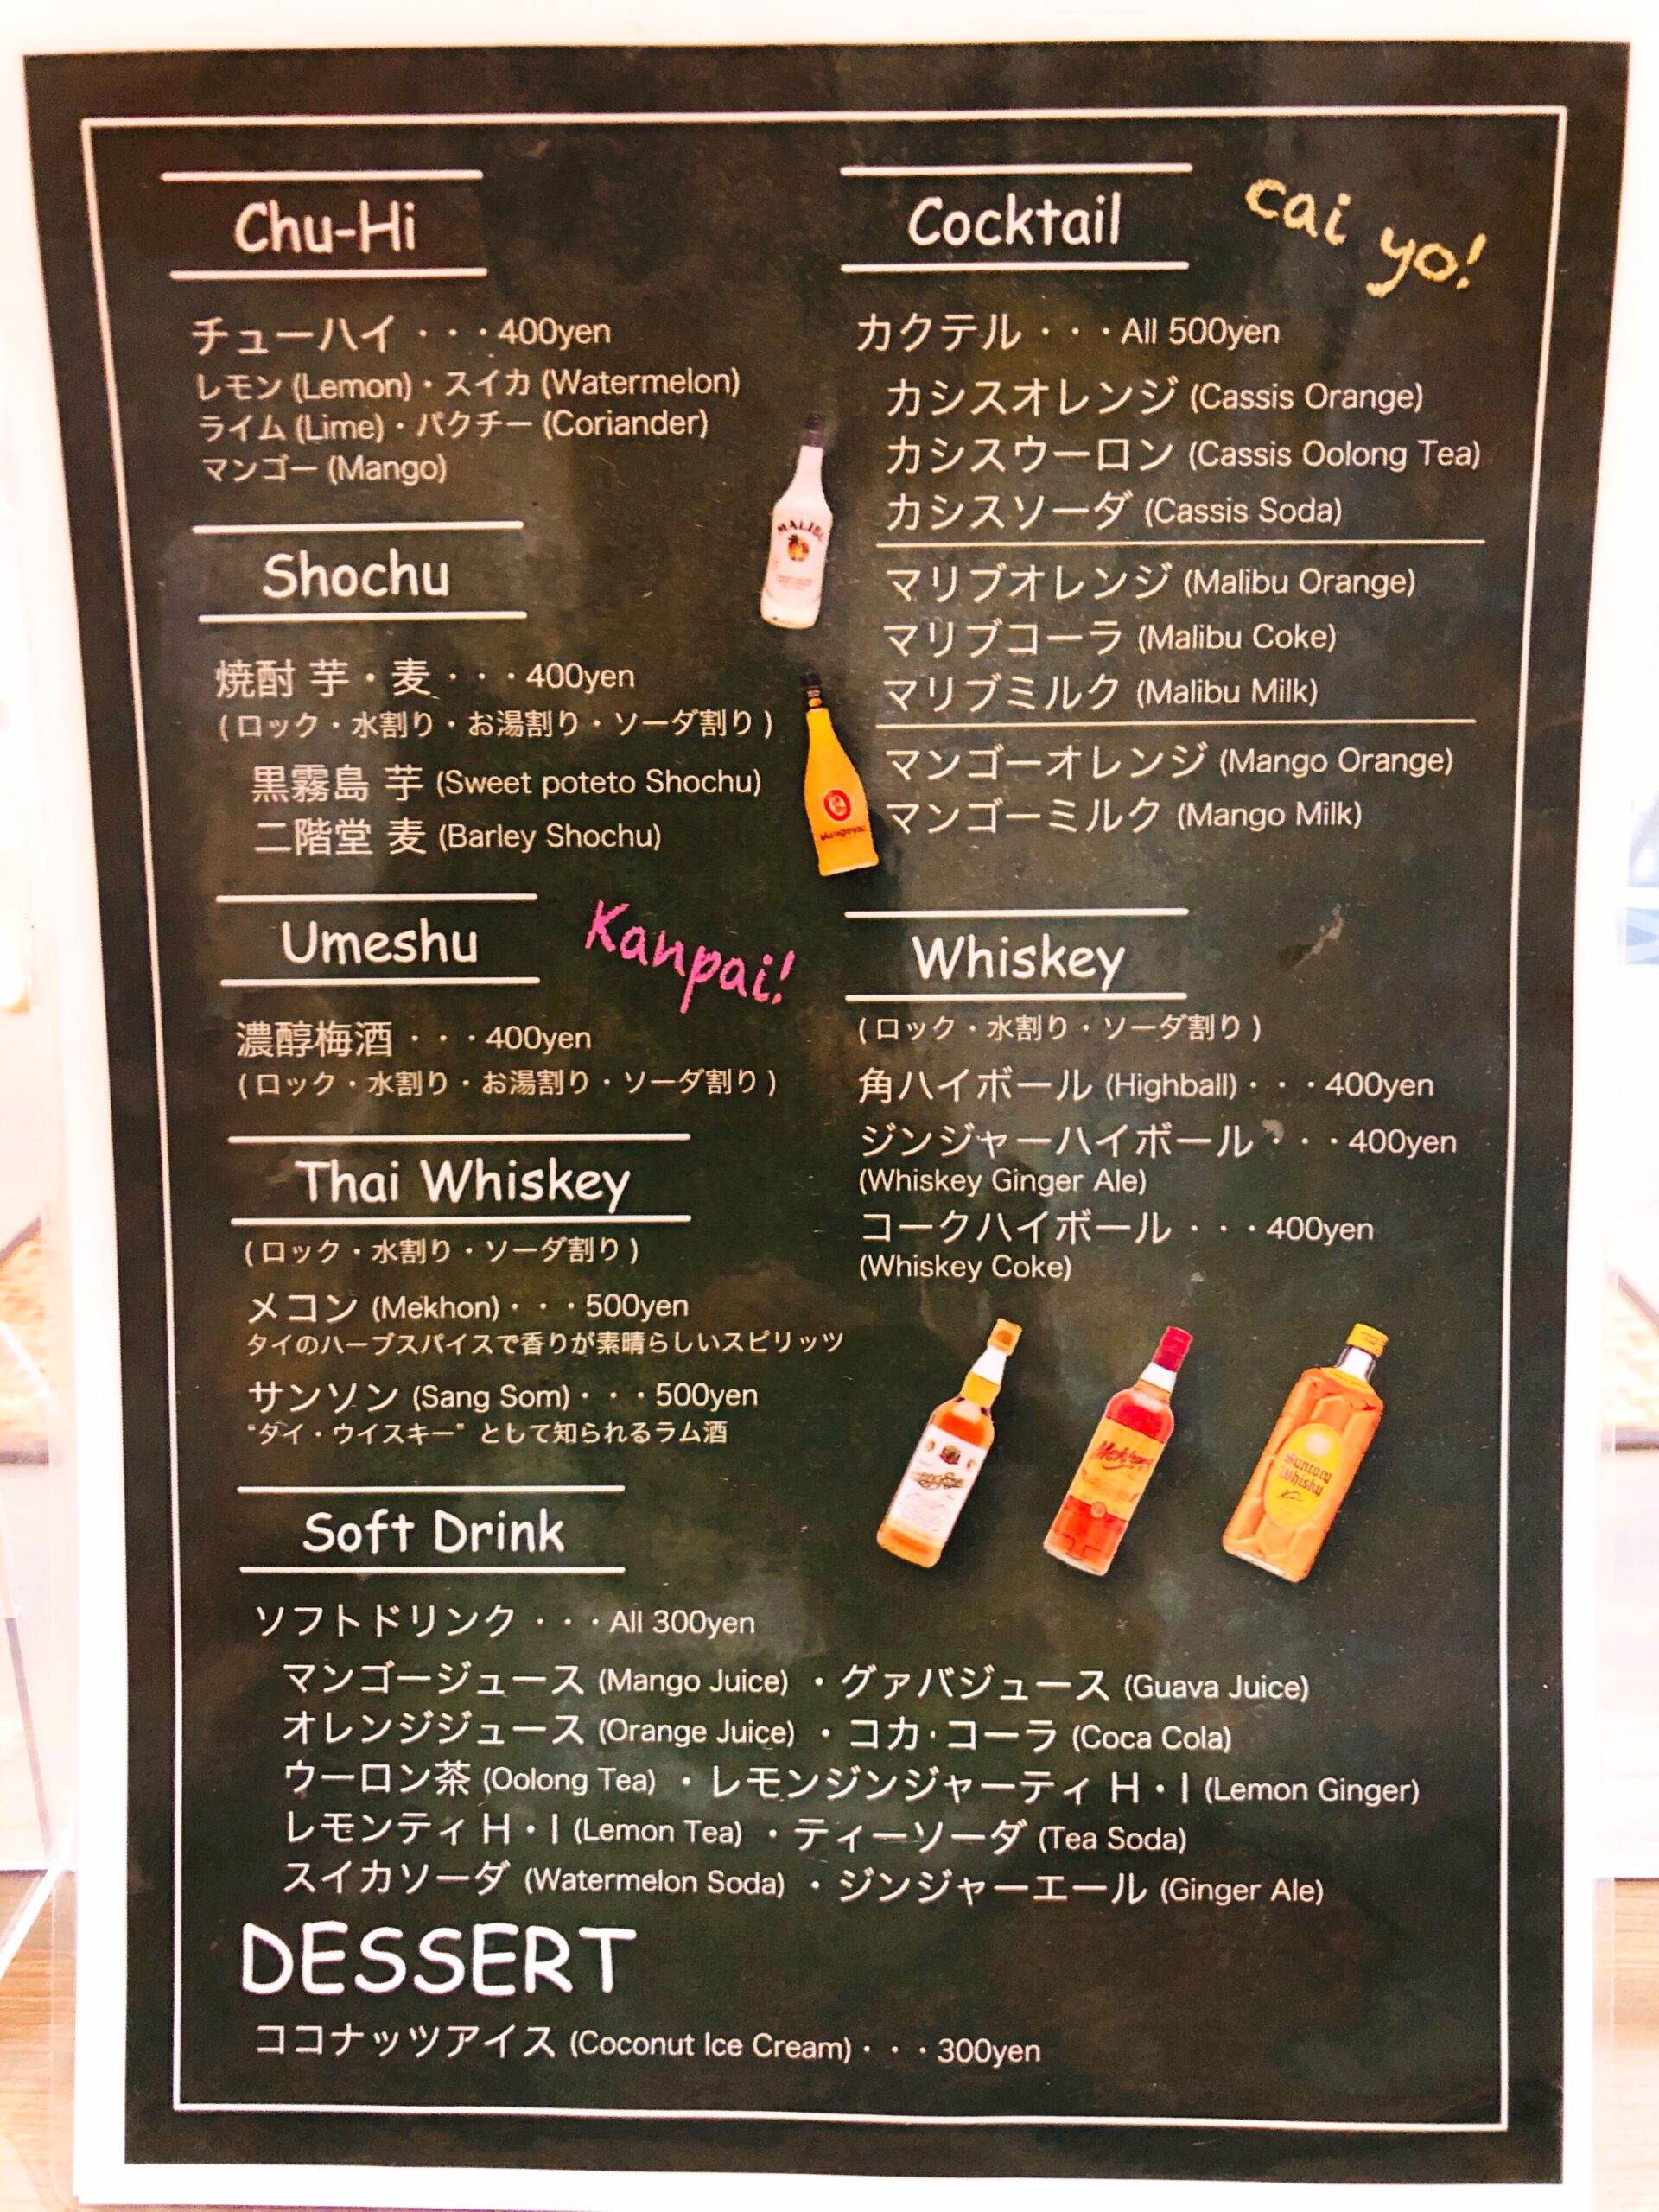 Chu-Hi
チューハイ・・・400yen
レモン (Lemon)・スイカ (Watermelon)
ライム (Lime)・パクチー (Coriander)
マンゴー (Mango)
Shochu
焼酎 芋・麦・・・400yen
(ロック・水割り・お湯割り・ソーダ割り)
黒霧島 芋 (Sweet poteto Shochu)
二階堂 麦 (Barley Shochu)
Umeshu
Kanpai!
濃醇梅酒・・・400yen
(ロック・水割り・お湯割り・ソーダ割り)
Thai Whiskey
(ロック・水割り・ソーダ割り)
メコン (Mekhon)・・・500yen
タイのハーブスパイスで香りが素晴らしいスピリッツ
サンソン (Sang Som)・・・500yen
“タイ・ウイスキー” として知られるラム酒
Cocktail
cai yo!
カクテル・・・All 500yen
カシスオレンジ (Cassis Orange)
カシスウーロン (Cassis Oolong Tea)
カシスソーダ (Cassis Soda)
マリブオレンジ (Malibu Orange)
マリブコーラ (Malibu Coke)
マリブミルク (Malibu Milk)
マンゴーオレンジ (Mango Orange)
マンゴーミルク (Mango Milk)
MALIBU
Whiskey
(ロック・水割り・ソーダ割り)
角ハイボール (Highball)・・・400yen
ジンジャーハイボール・・・400yen
(Whiskey Ginger Ale)
コークハイボール・・・400yen
(Whiskey Coke)
Suntory
Whisky
Soft Drink
ソフトドリンク・・・All 300yen
マンゴージュース (Mango Juice) ・グァバジュース (Guava Juice)
オレンジジュース (Orange Juice) ・コカ・コーラ (Coca Cola)
ウーロン茶 (Oolong Tea) ・レモンジンジャーティ H・I (Lemon Ginger)
レモンティ H・I (Lemon Tea) ・ティーソーダ (Tea Soda)
スイカソーダ (Watermelon Soda) ・ジンジャーエール (Ginger Ale)
DESSERT
ココナッツアイス (Coconut Ice Cream)・・・300yen